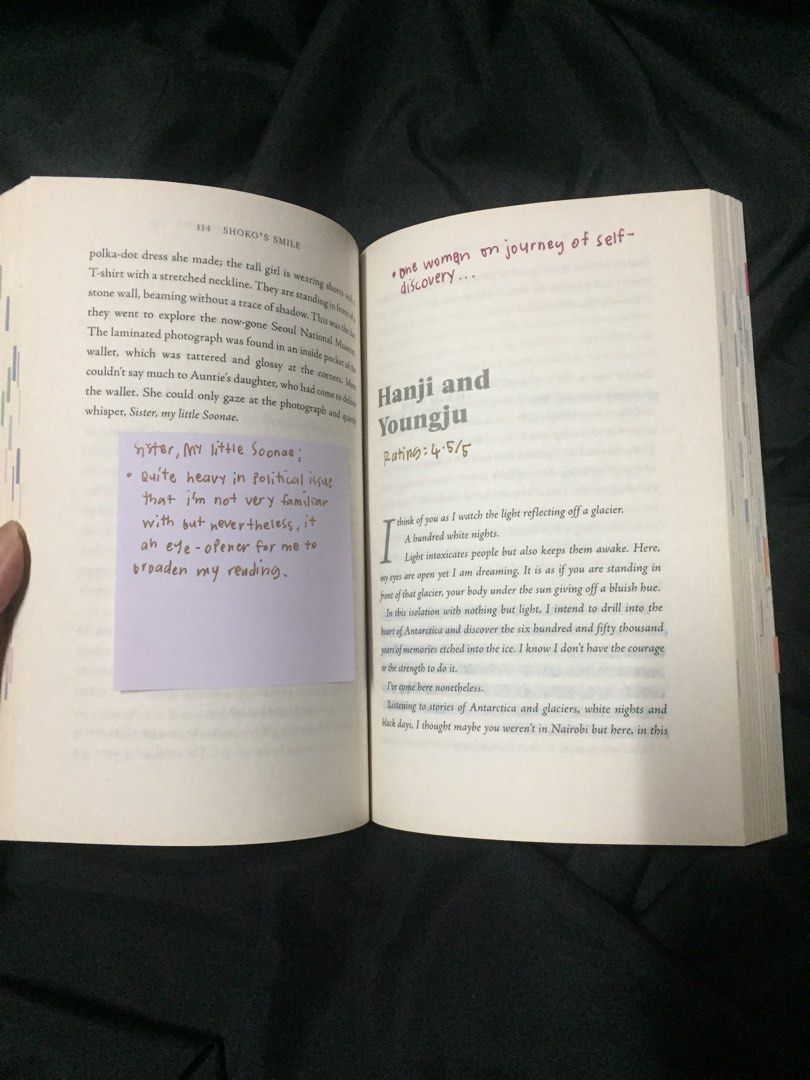 114 SHOKO'S SMILE
polka-dot dress she made; the tall girl is wearing shorts and a
T-shirt with a stretched neckline. They are standing in front of a
stone wall, beaming without a trace of shadow. This was the
they went to explore the now-gone Seoul National Museum.
The laminated photograph was found in an inside pocket of the
wallet, which was tattered and glossy at the corners.
couldn't say much to Auntie's daughter, who had come to deliver
the wallet. She could only gaze at the photograph and quietly
whisper, Sister, my little Soonae.
Sister, My little Soonae;
• Quite heavy in political issue
that i'm not very familiar
with but nevertheless, it
an eye-opener for me to
broaden my reading.
• one woman on journey of self-
discovery...
Hanji and
Youngju
Rating: 4.5/5
I think of you as I watch the light reflecting off a glacier.
A hundred white nights.
Light intoxicates people but also keeps them awake. Here,
my eyes are open yet I am dreaming. It is as if you are standing in
front of that glacier, your body under the sun giving off a bluish hue.
In this isolation with nothing but light, I intend to drill into the
heart of Antarctica and discover the six hundred and fifty thousand
years of memories etched into the ice. I know I don't have the courage
or the strength to do it.
I've come here nonetheless.
Listening to stories of Antarctica and glaciers, white nights and
black days, I thought maybe you weren't in Nairobi but here, in this